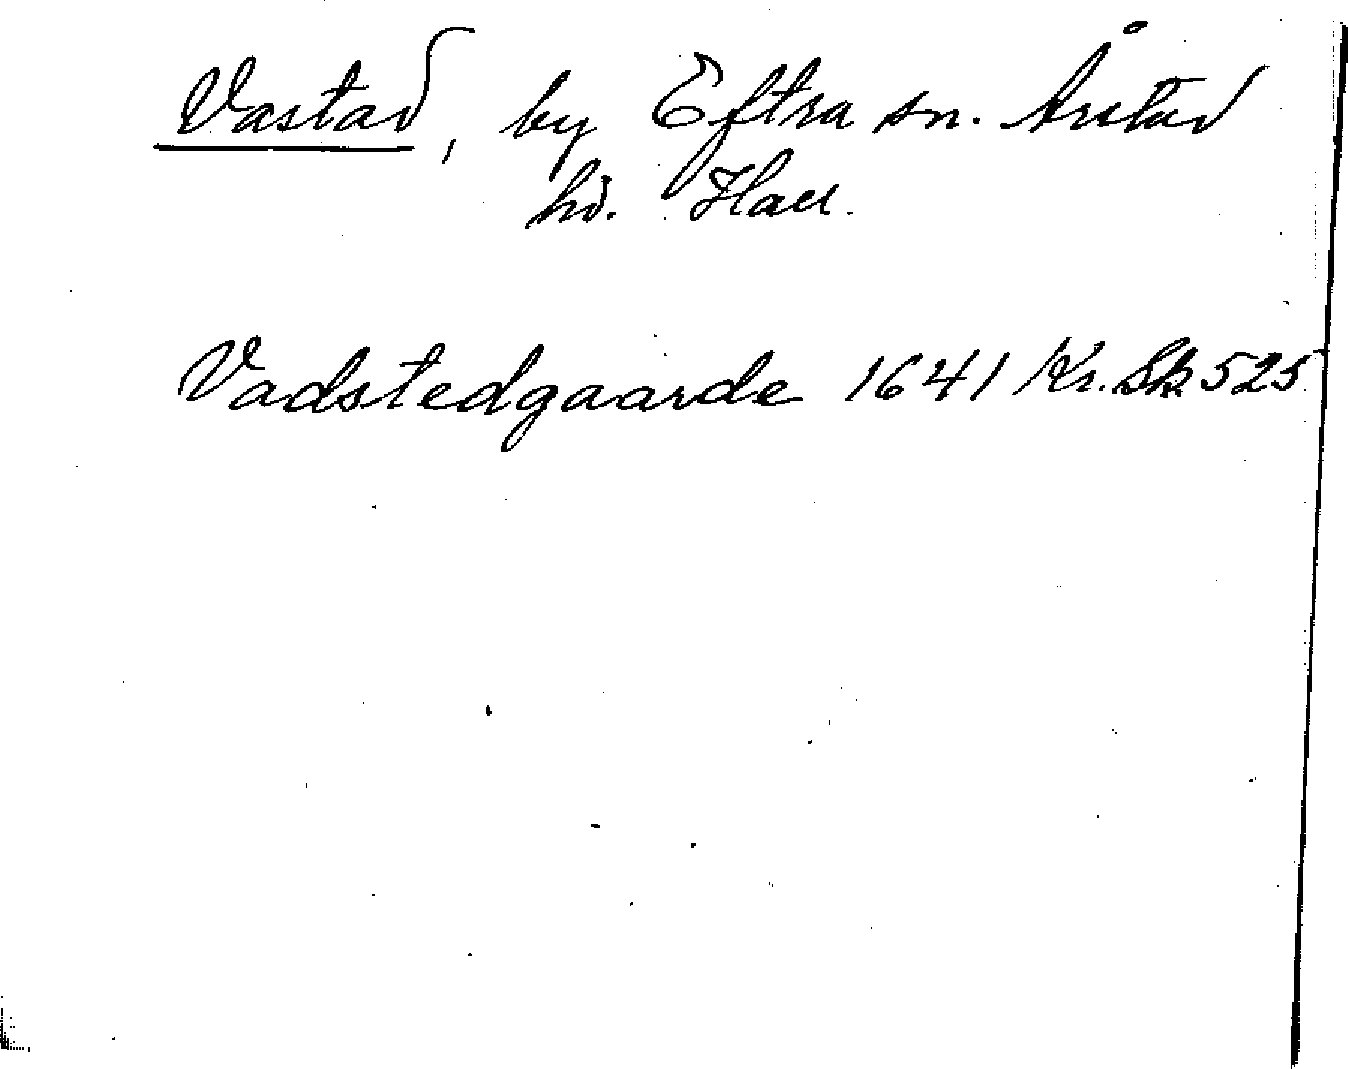 Vastad, by Eftra sn. Årstad
hd. Hall.
Vadstedgaarde 1641 Kr. Sk. 525